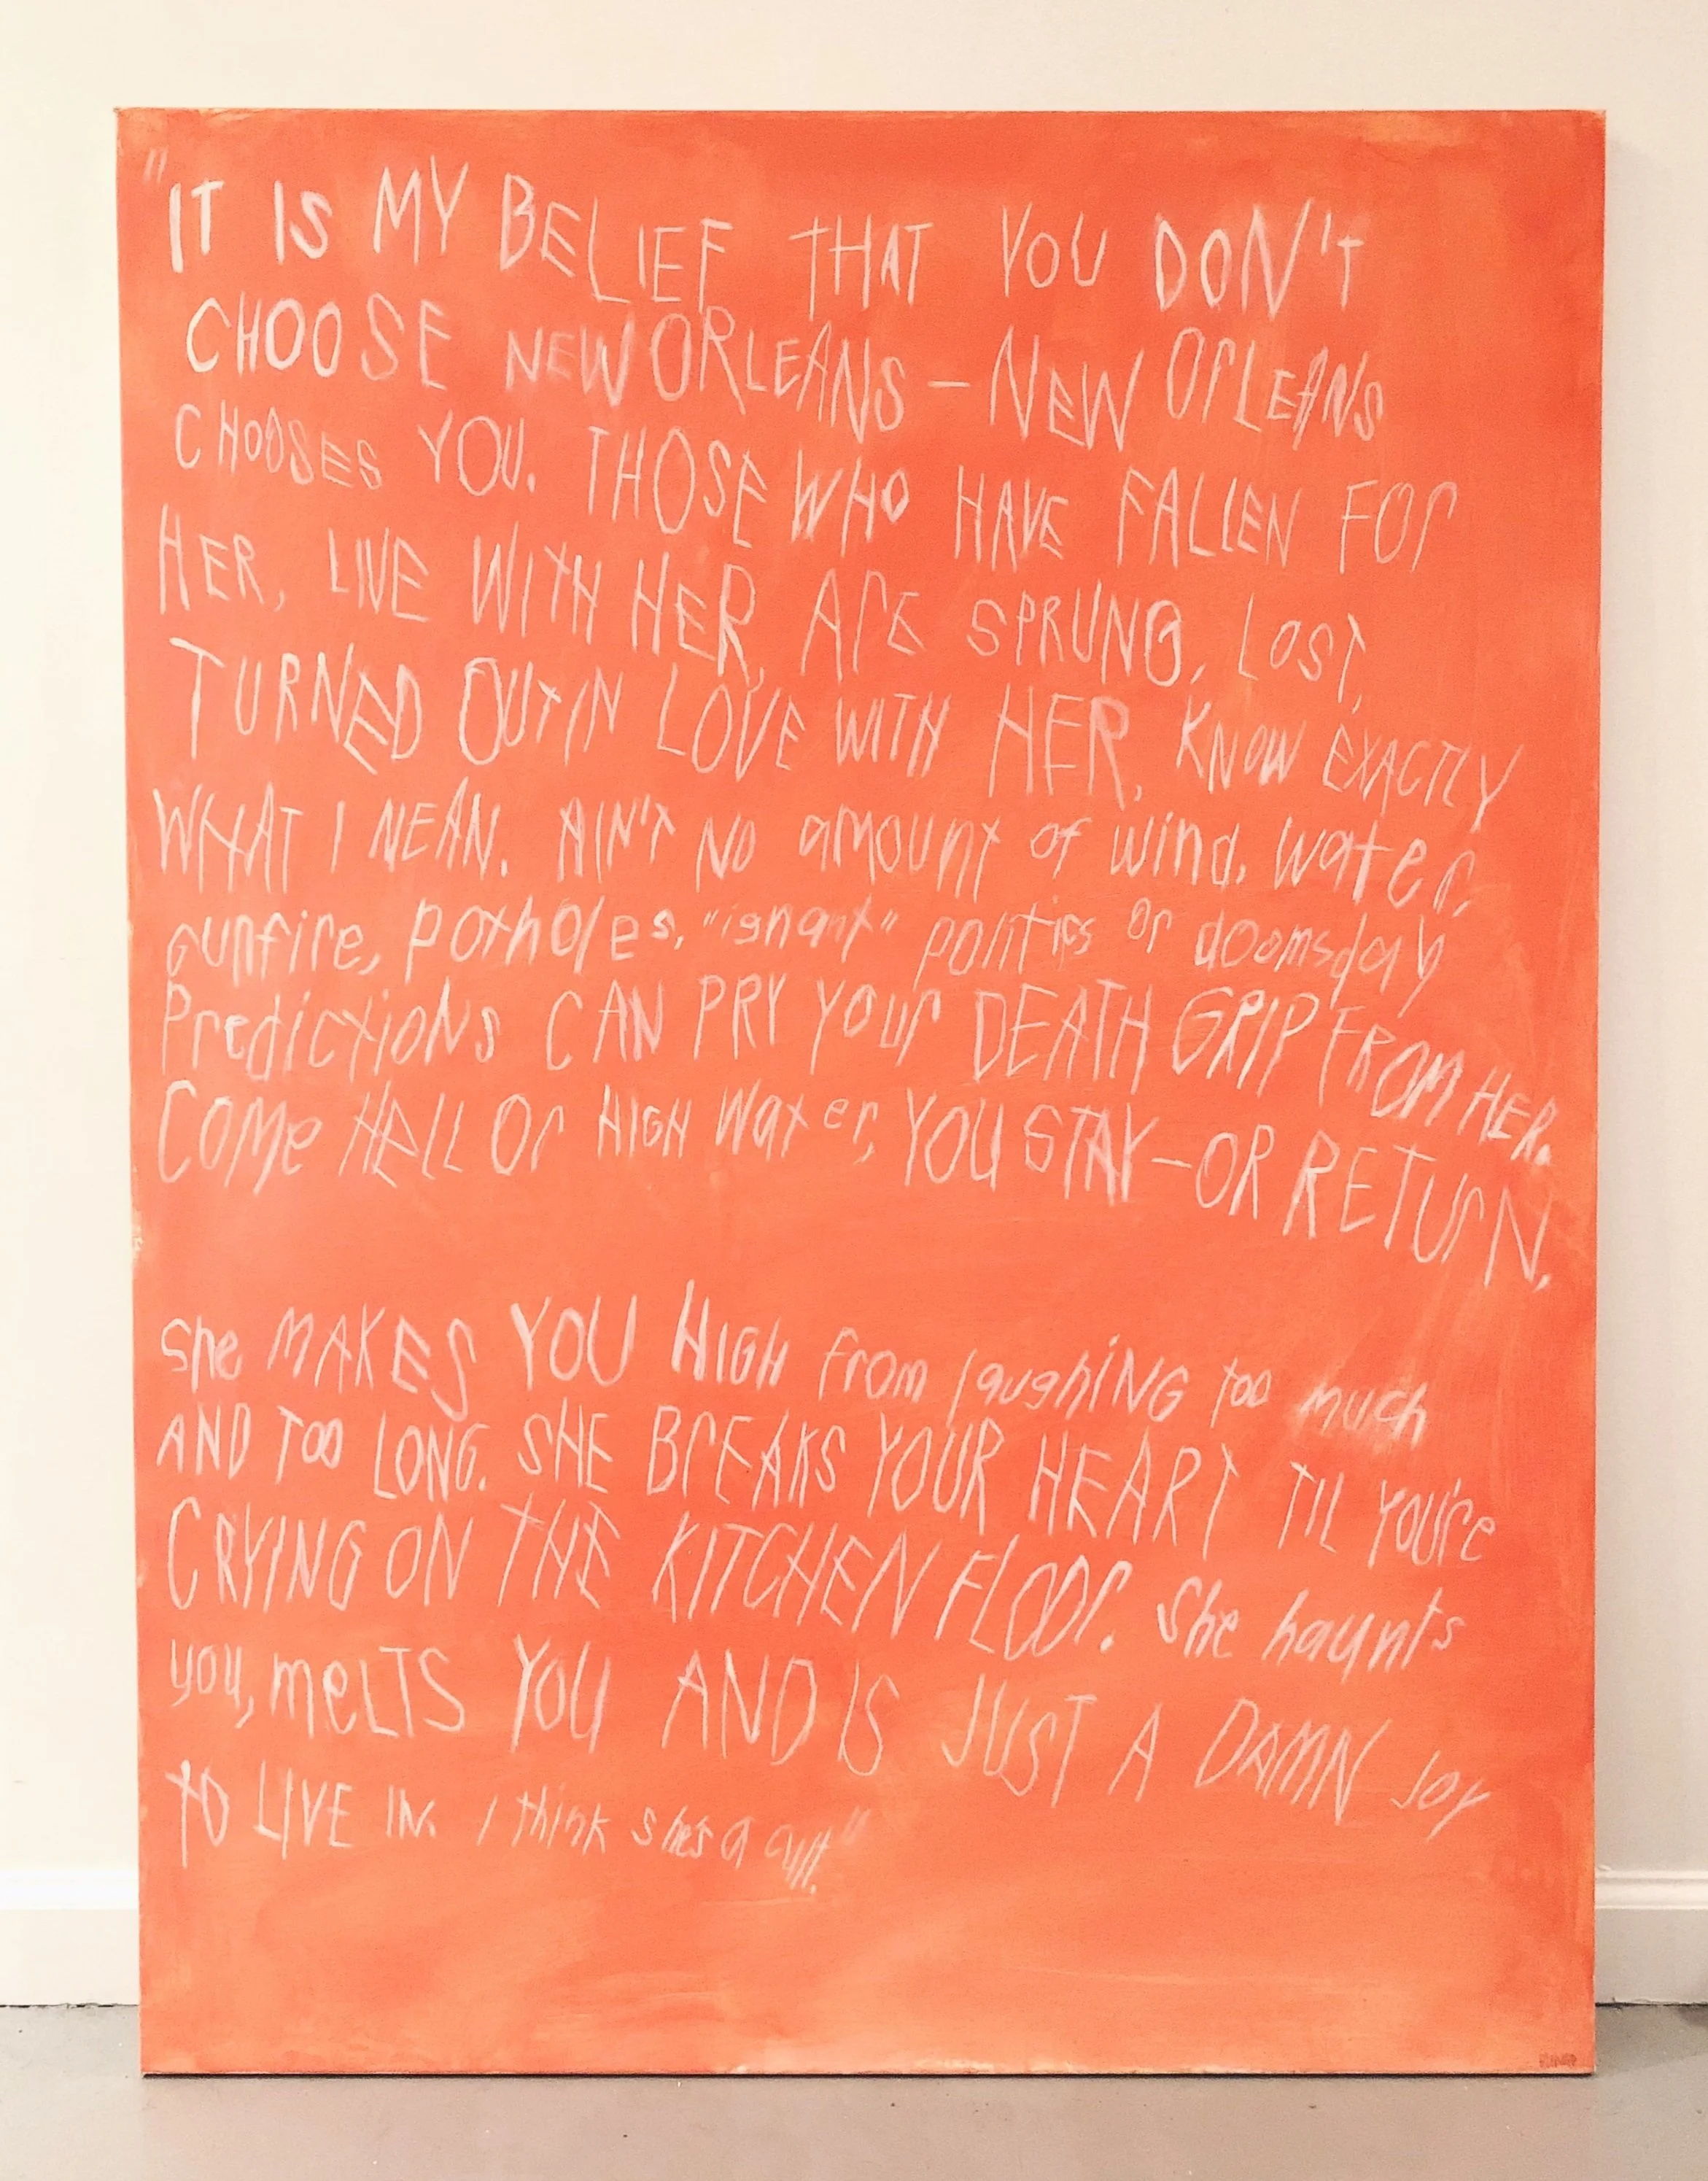 "IT IS MY BELIEF THAT YOU DON'T
CHOOSE NEW ORLEANS – NEW OrLEANS
CHOOSES YOU. THOSE WHO HAVE FALLEN FOr
HER, LIVE WITH HER, ArE SPRUNG, LOST,
TURNED OUT IN LOVE WITH HER, KNOW EXACTLY
WHAT I NEAN. AIN'T NO amount of wind, water,
gunfire, potholes, "ignant" politics or doomsday
PredictioNs CAN PRY YOur DEATH GrIP FROM HER.
COMe HELL Or HIGH Water, YOU STAY – OR RETUrN.
She MAKES YOU HIGH from laughiNG too much
AND TOO LONG. SHE BrEAKS YOUR HEART TIL YOU're
CRYING ON THE KITCHEN FLOOr. She haunts
you, meLTS YOU AND IS JUST A DAMN JOY
TO LIVE IN. I think she's a cult."